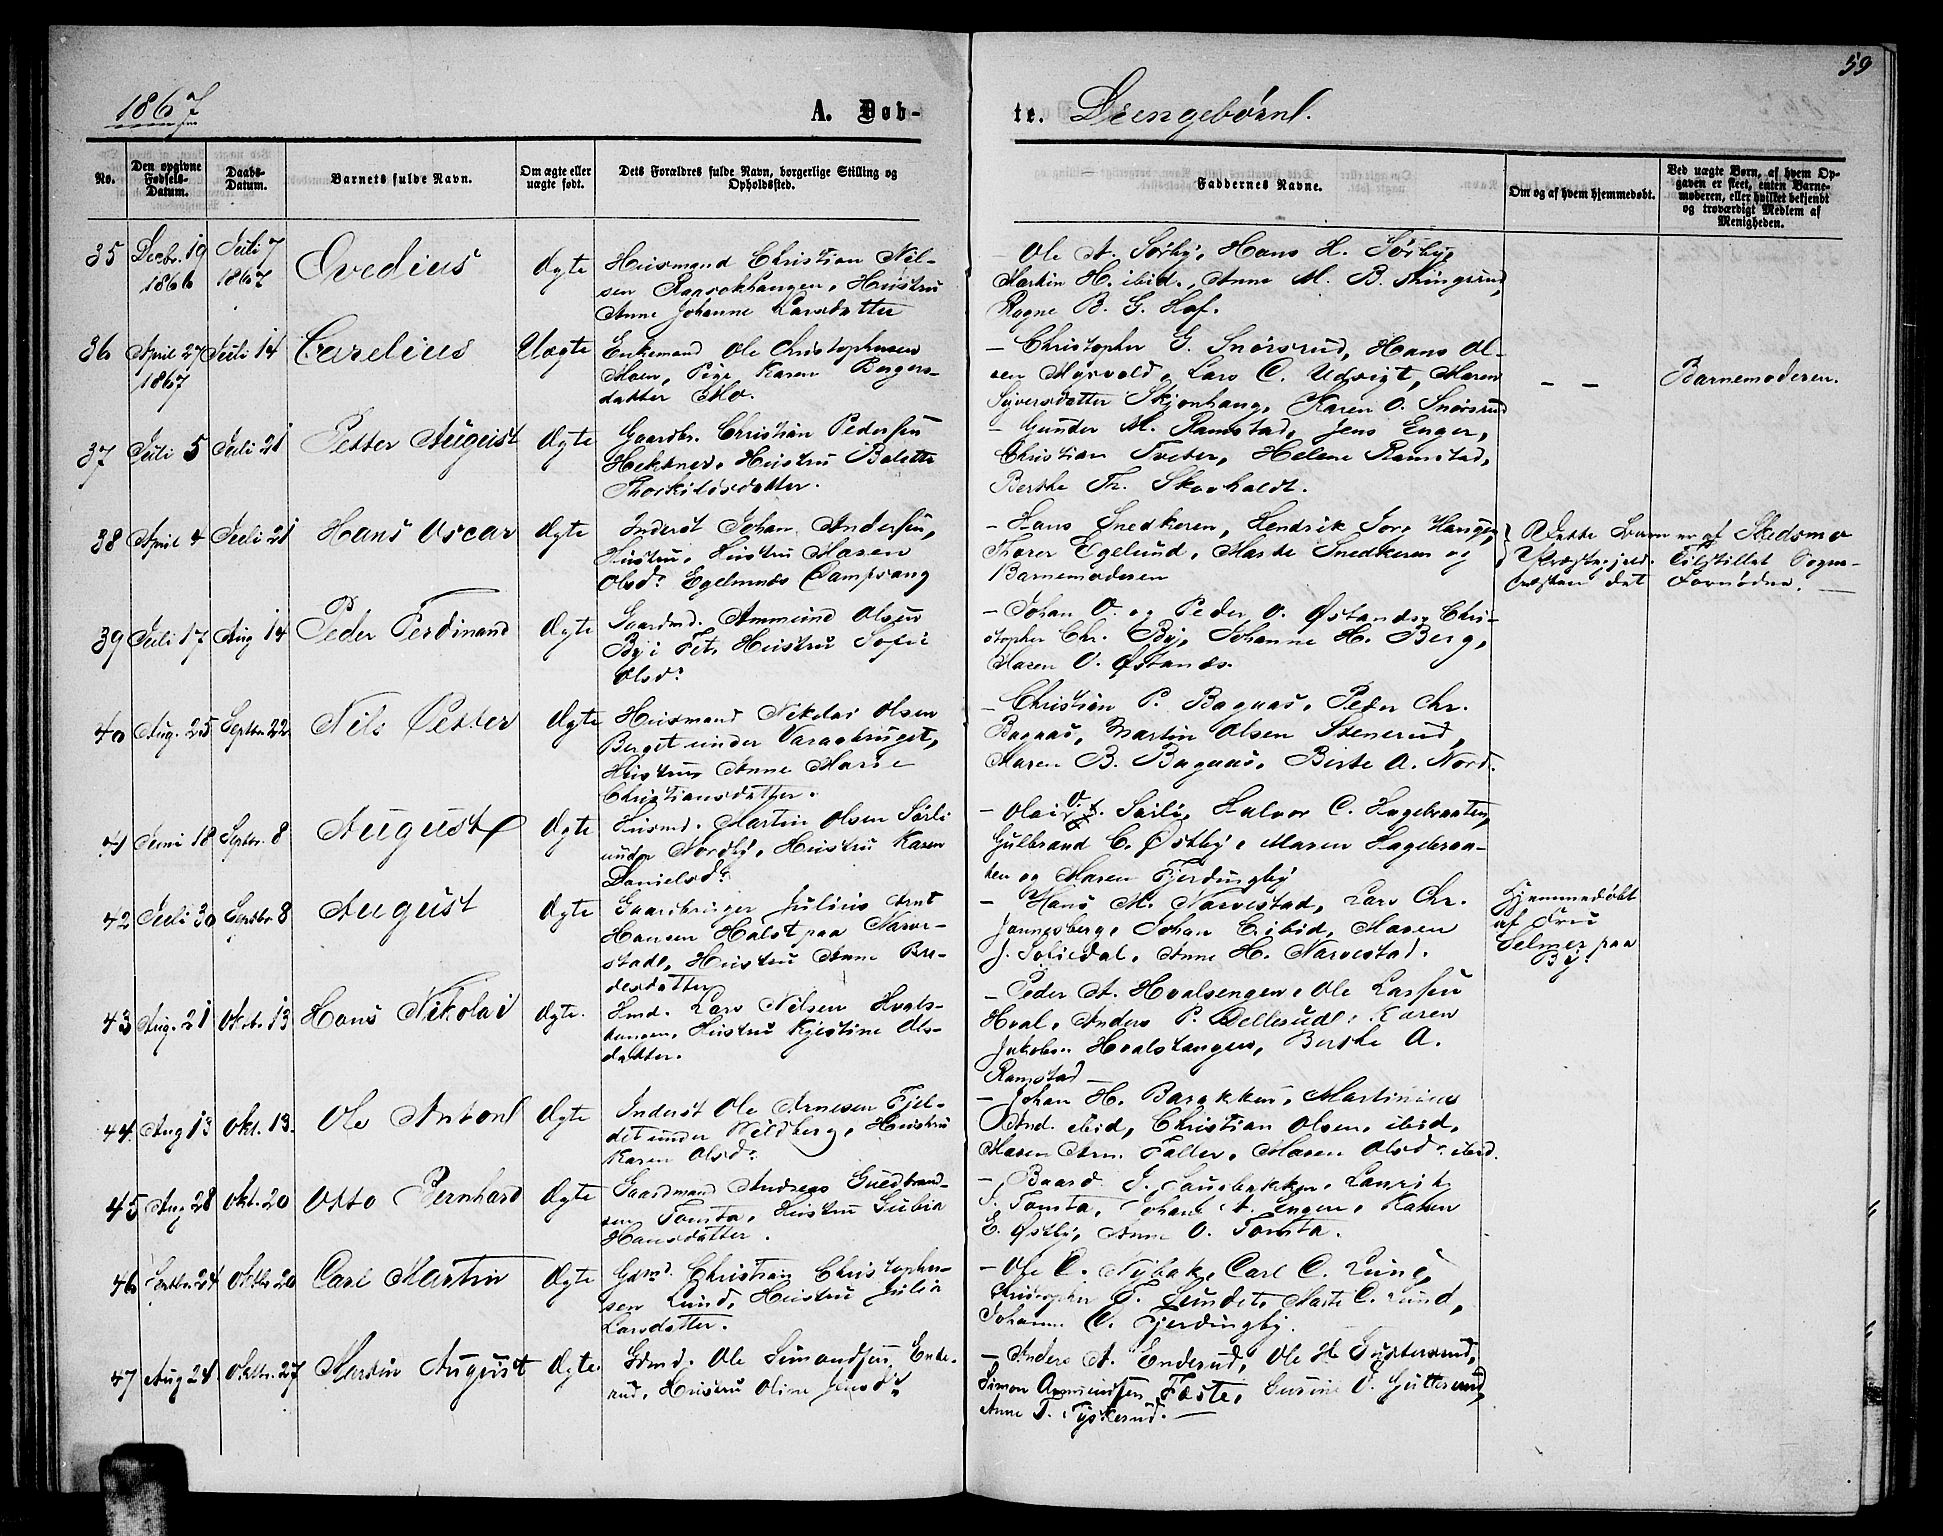 59
1867
A. Døb-
te. Drengebørn.
No.
Den opgivne Fødsels-Datum.
Daabs-Datum.
Barnets fulde Navn.
Om ægte eller uægte født.
Dets Forældres fulde Navn, borgerlige Stilling og Opholdssted.
Faddernes Navne.
Om og af hvem hjemmedøbt.
Ved uægte Børn, af hvem Opgaven er skeet, enten Barnemoderen, eller hvilket bekjendt og troværdigt Medlem af Menigheden.
35 Decbr. 19 1866 Juli 7 1867 Ovedius Ægte
Huusmand Christian Nil-
sen Hustru
Anne Johanne Larsdatter
- Ole A. Sørby, Hans H. Sørby,
Martin H. ibid., Anne M. B.
Ragne B. G. Hof.
36 April 27 1867 Juli 14 Carelius Uægte
Enkemand Ole Christophersen
Moen, Pige Karen Bergers-
datter Mo.
- Christopher G. Snørsrud, Hans Ol-
sen Myrvold, Lars C. Udsigt, Maren
Syversdatter Skjønhaug, Karen O. Snørsrud
- - Barnemoderen.
37 Juli 5 Juli 21 Petter August Ægte
Gaardbr. Christian Pedersen
Hektner, Hustru Bolette
Thorkildsdatter.
- Gunder M. Ramstad, Jens Enger,
Christian Tveter, Helene Ramstad,
Berthe Th. Skovholdt.
38 April 4 Juli 21 Hans Oscar Ægte
Inderst Johan Andersen,
Hustru, Hustru Maren
Olsd. Egelunds Dampsaug
- Hans Snedkeren, Hendrik Haugen,
Thorer Egelund, Marte Snedkeren og
Barnemoderen
Dette Barn er af Skedsmo
Præstegjeld. Tilstillet Sogne-
præsten det Fornødne.
39 Juli 17 Aug 14 Peder Ferdinand Ægte
Gaardmd. Ammund Olsen
By i Fet, Hustru Sofie
Olsd.
- Johan O. og Peder O. Østands, Chri-
stopher Chr. By, Johanne H. Berg,
Maren O. Østands.
40 Aug. 25 Septbr. 22 Nils Petter Ægte
Huusmand Nikolai Olsen
Berget under Varaabruget,
Hustru Anne Marie
Christiansdatter.
- Christian P. Bagaas, Peder Chr.
Bagaas, Martin Olsen Stenerud,
Maren B. Bagaas, Birte A. Nord.
41 Juni 18 Septbr. 8 August Ægte
Husmd. Martin Olsen Sørli
under Nordby, Hustru Karen
Danielsd.
- Olai O. Sørli, Halvor C. Hagebraaten,
Gulbrand C. Østby, Maren Hagebraa-
ten og Maren Fjerdingby
42 Juli 30 Septbr. 8 August Ægte
Gaardbruger Julius Arnt
Hansen Holst paa Narve-
stad, Hustru Anne Bre-
desdatter
- Hans M. Narvestad, Lars Chr.
Jonnesberg, Johan C. ibid, Maren
J. Sofiedal, Anne H. Narvestad.
Hjemmedøbt
af Fru
Selmer paa
By.
43 Aug. 21 Oktbr. 13 Hans Nikolai Ægte.
Hmd. Lars Nilsen Hvals-
tangen, Hustru Kjestine Ols-
datter.
- Peder A. Hvalsengen, Ole Larsen
Hval, Anders P. Dellerud, Karen
Jakobsen Hvalstangen, Berthe A.
Ramstad
44 Aug 13 Okt. 13 Ole Anton Ægte
Inderst Ole Arnesen Fjel-
det under Vildberg, Hustru
Karen Olsd.
- Johan H. Barakken, Martinius
And. ibid, Christian Olsen ibid,
Maren Arn. Faller, Maren Olsd. ibid.
45 Aug 28 Okt. 20 Otto Bernhard Ægte
Gaardmand Andreas Gudbrand-
sen Tomta, Hustru Gubia
Hansdatter.
- Baard J. Laurits
J. Tomta, Johan A. Engen, Karen
E. Østby, Anne O. Tomta.
46 Septbr. 24 Oktbr 20 Carl Martin Ægte
Gdmd. Christian Christopher-
sen Lund, Hustru Julia
Larsdatter.
- Ole C. Nybak, Carl C. Lund,
Christopher T. Sundet, Marte C. Lund,
Johanne C. Fjerdingby.
47 Aug 24 Oktbr. 27 Martin August Ægte
Gdmd. Ole Simondsen Ende-
rud, Hustru Oline Jensd.
- Anders A. Enderud, Ole H.
Simon Ammundsen Fæste, O.
Anne T. Tyskerud.